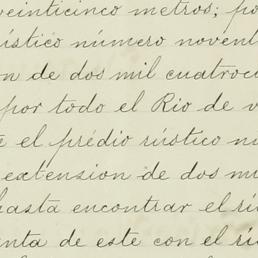 veinticinco metros; po
ústico número novent
n de dos mil cuatroci
por todo el Rio de v
e el prédio rústico nu
extension de dos mi
hasta encontrar el rí
enta de este con el rí